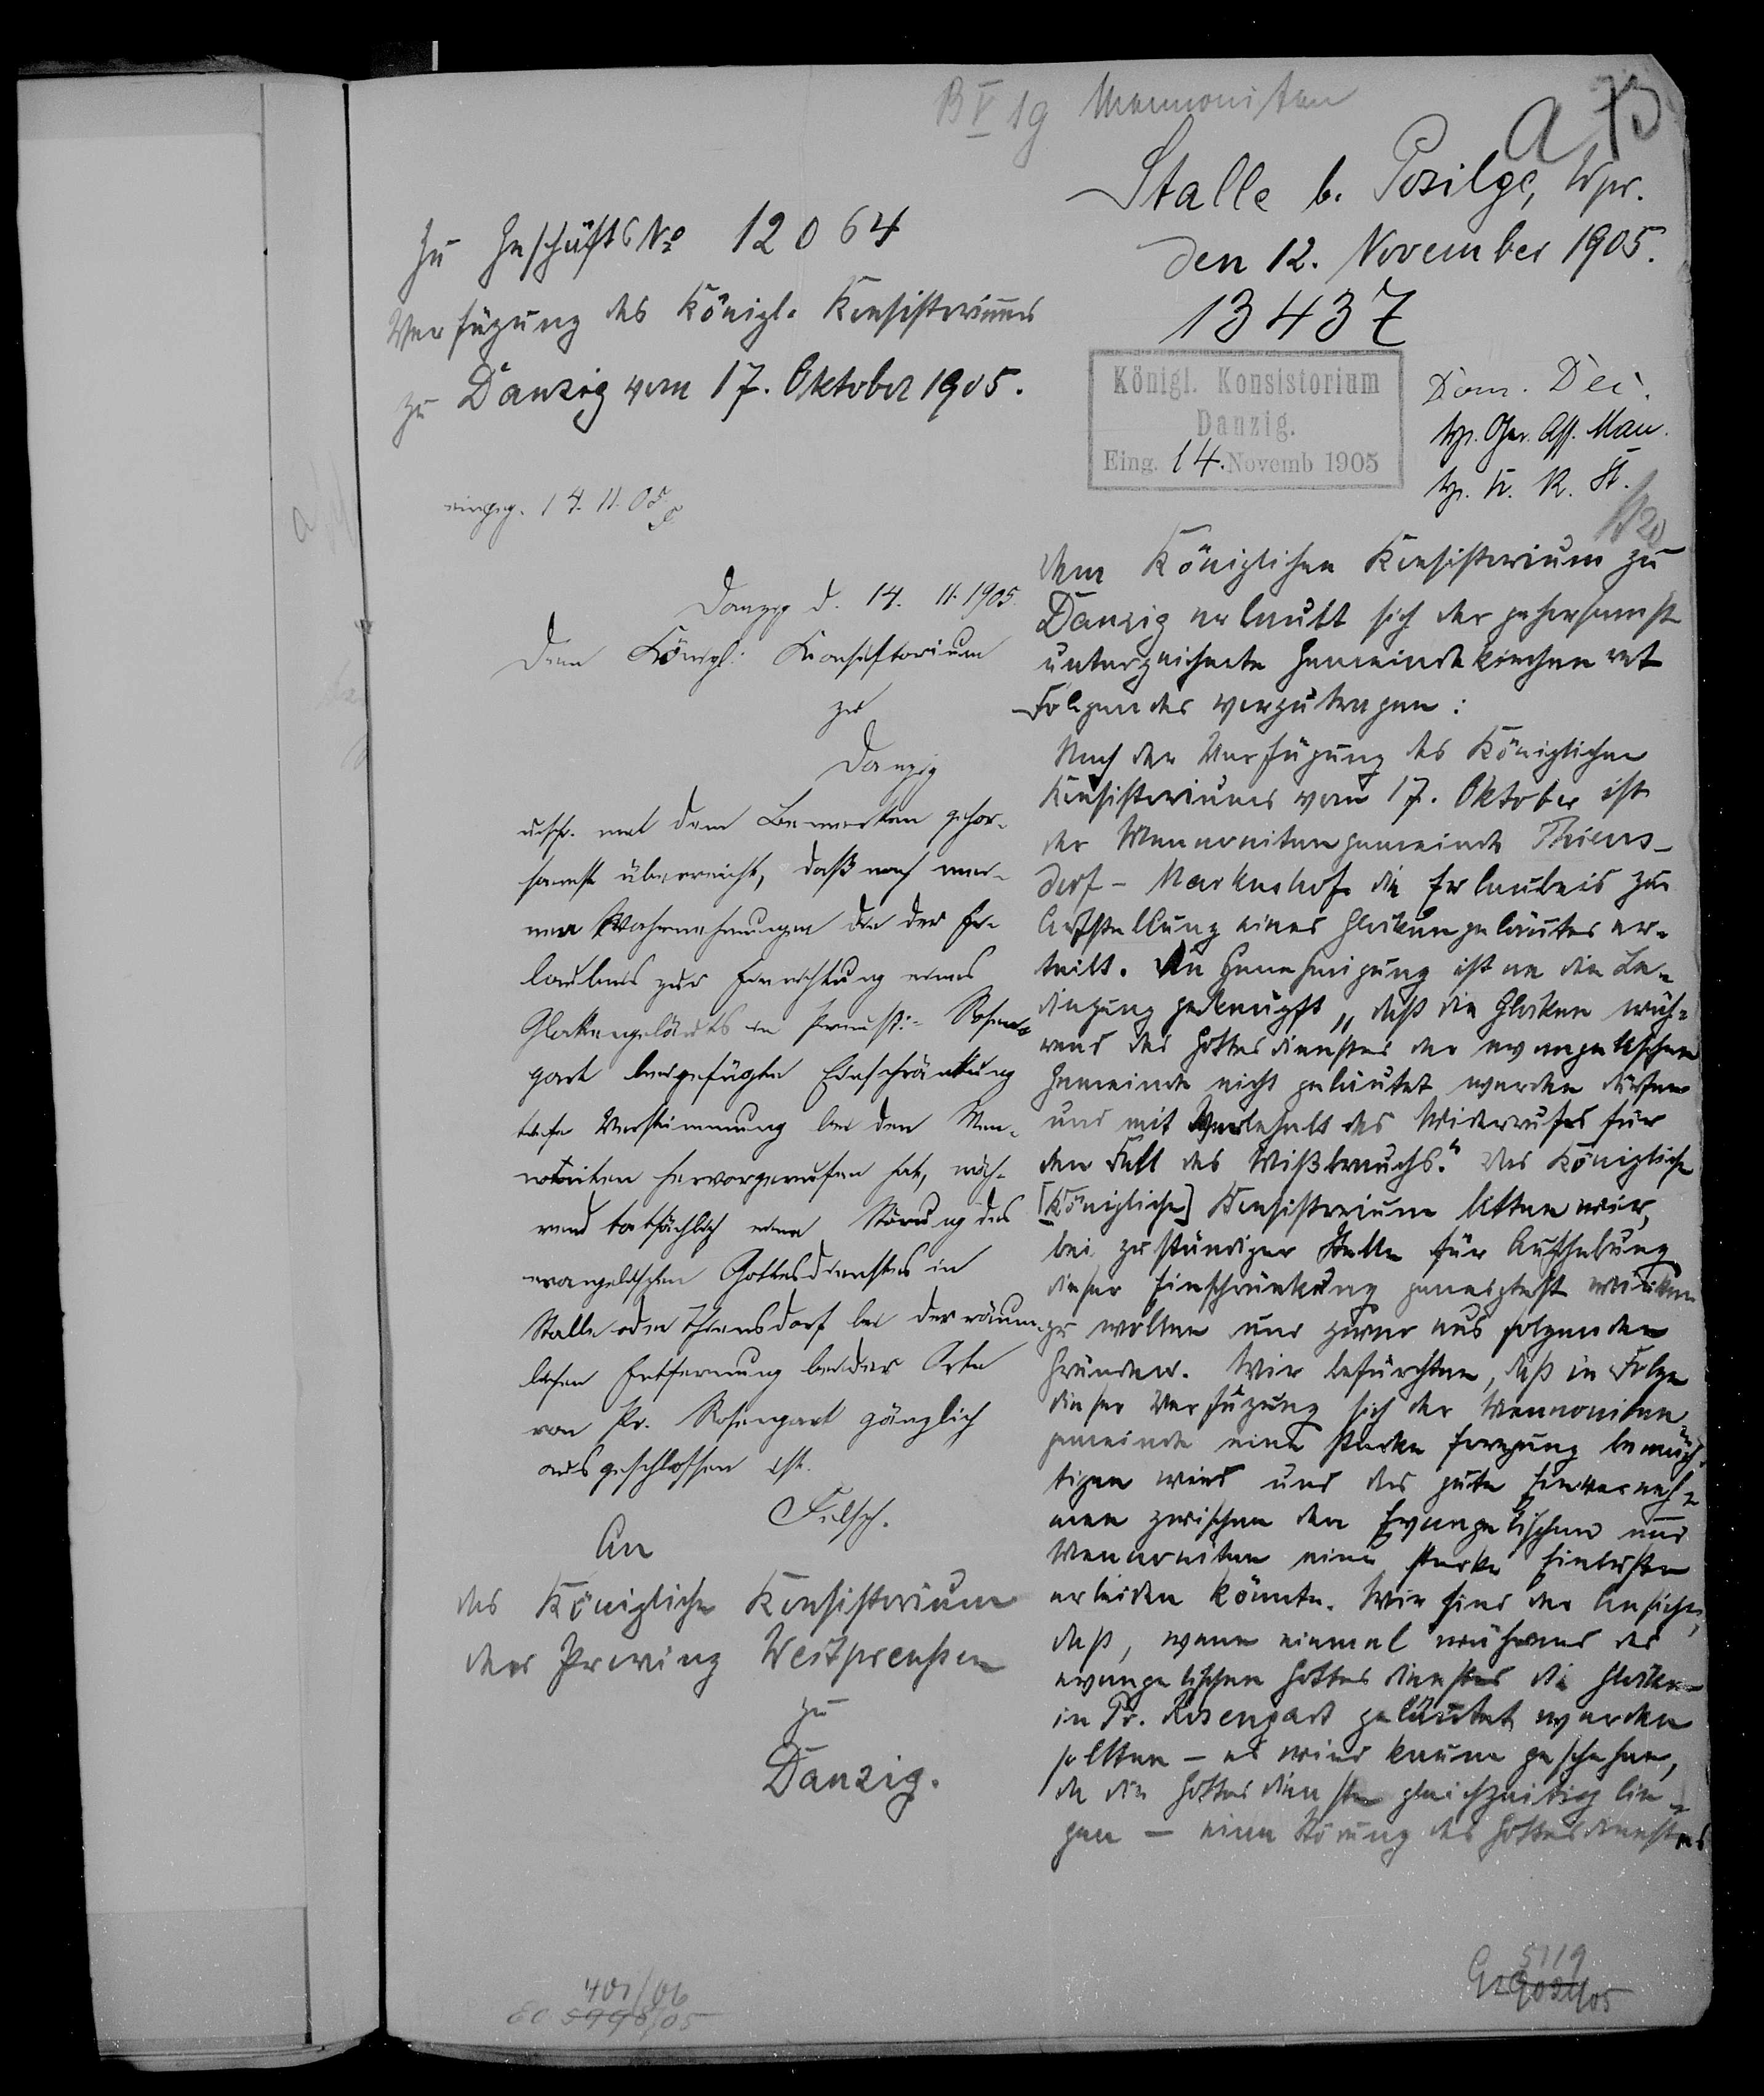 B V 19 Mennoniten
a 73
Stalle b. Posilge, Wpr.
den 12. November 1905.
13437
Zu Geschäfts No 12064
Verfügung des Königl. Konsistoriums
zu Danzig vom 17. Oktober 1905.
Königl. Konsistorium
Danzig.
Eing. 14. Novemb 1905
eingeg. 14. 11. 05
Danzig d. 14. 11. 1905.
Dem Königl. Konsistorium
zu
Danzig
urschr. mit dem Bemerken gehor-
samst überreicht, daß nach mei-
nen Wahrnehmungen die der Er-
laubnis zur Einrichtung eines
Glockengeläuts in Preuß. Rosen-
gart beigefügte Einschränkung
tiefe Verstimmung bei den Men-
noniten hervorgerufen hat, wäh-
rend tatsächlich eine Störung des
evangelischen Gottesdienstes in
Stalle oder Thiensdorf bei der räum-
lichen Entfernung beider Orte
von Pr. Rosengart gänzlich
ausgeschlossen ist.
Felsch.
An
das Königliche Konsistorium
der Provinz Westpreußen
zu
Danzig.
Dem Königlichen Konsistorium zu
Danzig erlaubt sich der gehorsamst
unterzeichnete Gemeindekirchenrat
Folgendes vorzutragen:
Nach der Verfügung des Königlichen
Konsistoriums vom 17. Oktober ist
der Mennonitengemeinde Thiens-
dorf - Markushof die Erlaubnis zur
Aufstellung eines Glockengeläutes er-
teilt. Die Genehmigung ist an die Be-
dingung geknüpft, „daß die Glocken wäh-
rend des Gottesdienstes der evangelischen
Gemeinde nicht geläutet werden dürfen
und mit Vorbehalt des Widerrufes für
den Fall des Mißbrauchs." Das Königliche
[Königliche] Konsistorium bitten wir,
bei zuständiger Stelle für Aufhebung
dieser Einschränkung geneigtest wirken
zu wollen und zwar aus folgenden
Gründen. Wir befürchten, daß in Folge
dieser Verfügung sich der Mennoniten-
gemeinde eine starke Erregung bemäch-
tigen wird und das gute Einverneh-
men zwischen den Evangelischen und
Mennoniten eine starke Einbuße
erleiden könnte. Wir sind der Ansicht,
daß, wenn einmal während des
evangelischen Gottesdienstes die Glocken
in Pr. Rosengart geläutet werden
sollten – es wird kaum geschehen,
da die Gottesdienste gleichzeitig lie-
gen – eine Störung des Gottesdienstes
401/06
EO 5998/05
5119
9021/05